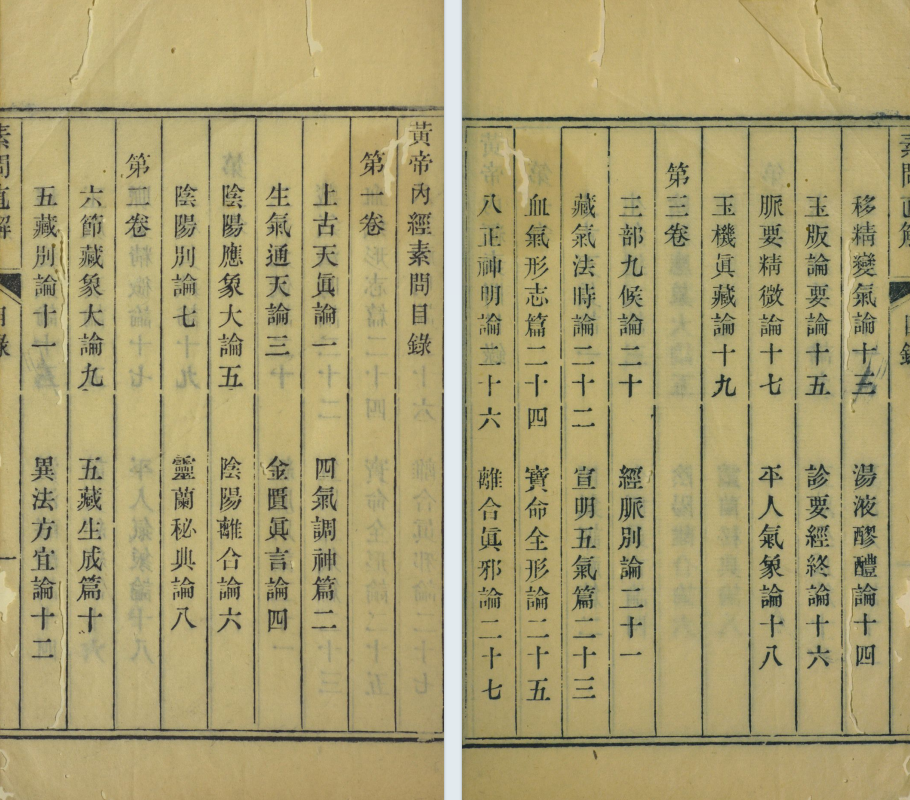 黃帝內經素問目錄
第一卷
上古天眞論一　四氣調神篇二
生氣通天論三　金匱眞言論四
陰陽應象大論五　陰陽離合論六
陰陽別論七　靈蘭秘典論八
第二卷
六節藏象大論九　五藏生成篇十
五藏別論十一　異法方宜論十二
素問直解　目錄　一
素問直解　目錄
移精變氣論十三　湯液醪醴論十四
玉版論要論十五　診要經終論十六
脈要精微論十七　平人氣象論十八
玉機眞藏論十九
第三卷
三部九候論二十　經脈別論二十一
藏氣法時論二十二　宣明五氣篇二十三
血氣形志篇二十四　寶命全形論二十五
八正神明論二十六　離合眞邪論二十七